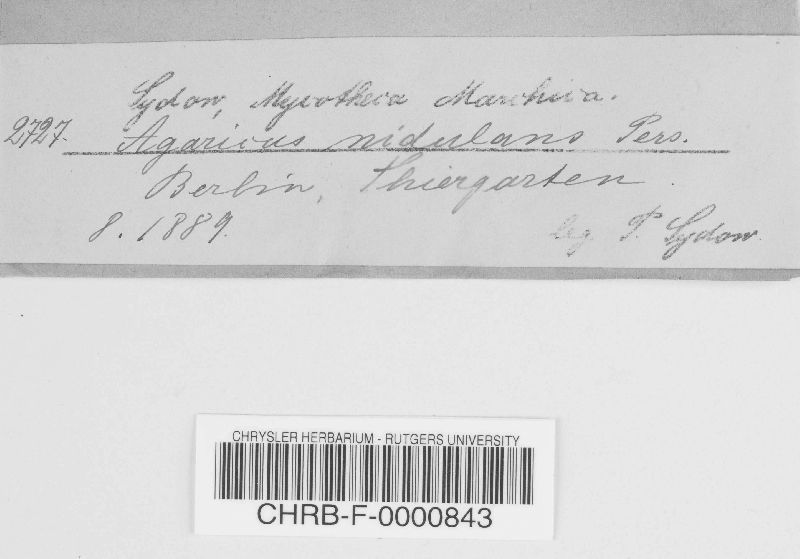 Sydow, Mycotheca Marchica.
2727. Agaricus nidulans Pers.
Berlin, Thiergarten.
8. 1889. leg. P. Sydow.
CHRYSLER HERBARIUM - RUTGERS UNIVERSITY
CHRB-F-0000843